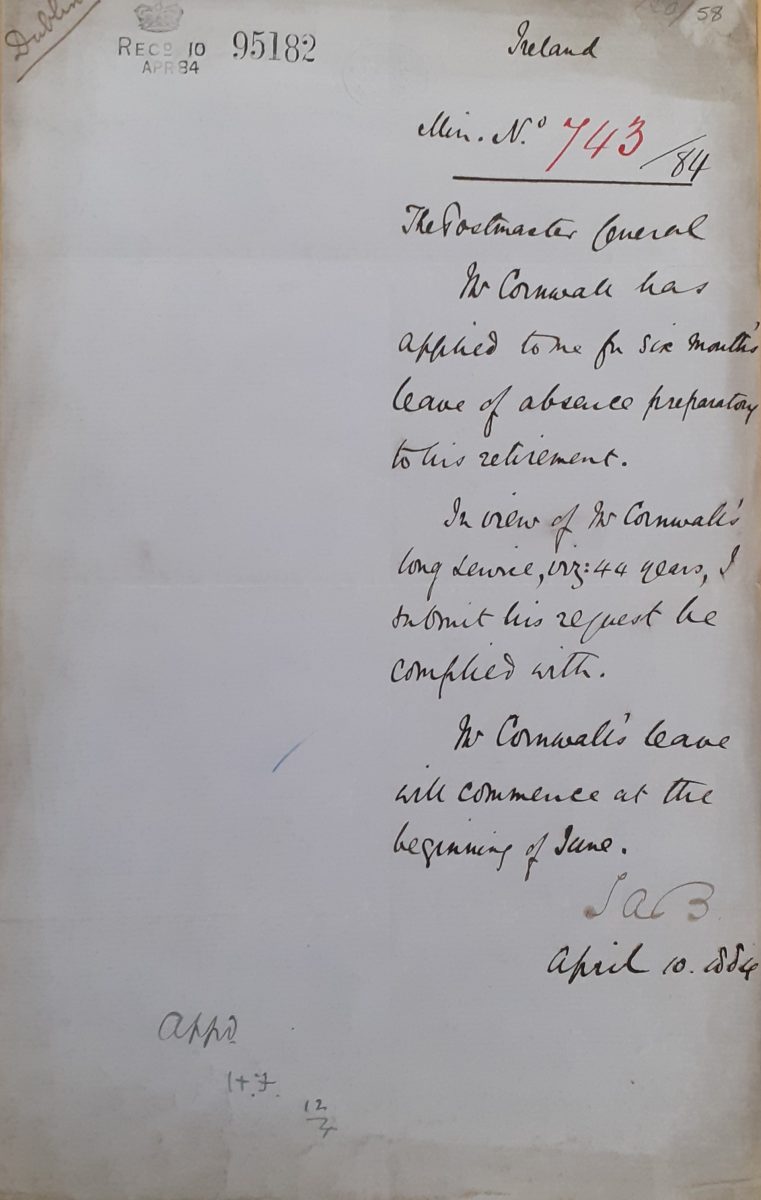 Dublin
58
REC? 10
APR 84
95182
Ireland
Min. No 743/84
The Postmaster General
Mr Cornwall has
applied to me for six month's
leave of absence preparatory
to his retirement.
In view of Mr Cornwall's
long service, viz: 44 years, I
submit his request be
complied with.
Mr Cornwall's leave
will commence at the
beginning of June.
SAB
April 10. 1884
Appd
H.F.
12/4